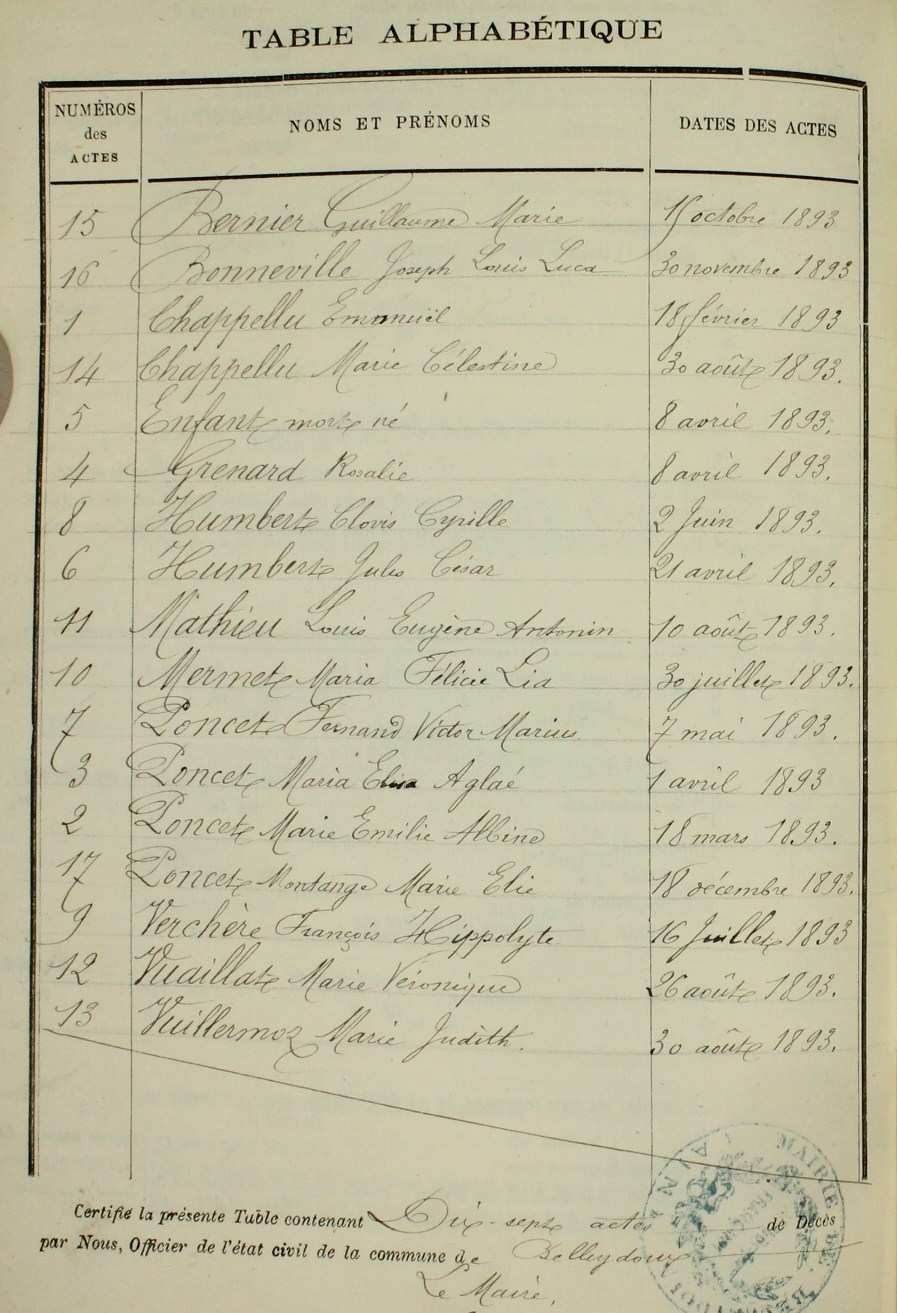 TABLE ALPHABÉTIQUE
NUMÉROS des ACTES NOMS ET PRÉNOMS DATES DES ACTES
15 Bernier Guillaume Marie octobre 1893
16 Bonneville Joseph Louis Luca 30 novembre 1893
1 Chappellu Emmnuël 18 février 1893
14 Chappellu Marie Célestine 30 août 1893.
5 Enfant mort né 8 avril 1893.
4 Grenard Rosalie 8 avril 1893.
8 Humbert Clovis Cyrille 2 Juin 1893.
6 Humbert Jules César 21 avril 1893.
11 Mathieu Louis Eugène Antonin 10 août 1893.
10 Mermet Maria Félicie Lia 30 juillet 1893.
7 Poncet Fernand Victor Marius 7 mai 1893.
3 Poncet Maria Elisa Aglaé 1 avril 1893
2 Poncet Marie Emilie Albine 18 mars 1893.
17 Poncet Montange Marie Elie 18 décembre 1893.
9 Verchère François Hippolyte 16 Juillet 1893
12 Vuaillat Marie Véronique 26 août 1893.
13 Vuillermoz Marie Judith. 30 août 1893.
Certifié la présente Table contenant Dix-sept actes de Décès
par Nous, Officier de l'état civil de la commune de Belleydoux
Le Maire,
MAIRIE DE
AIN